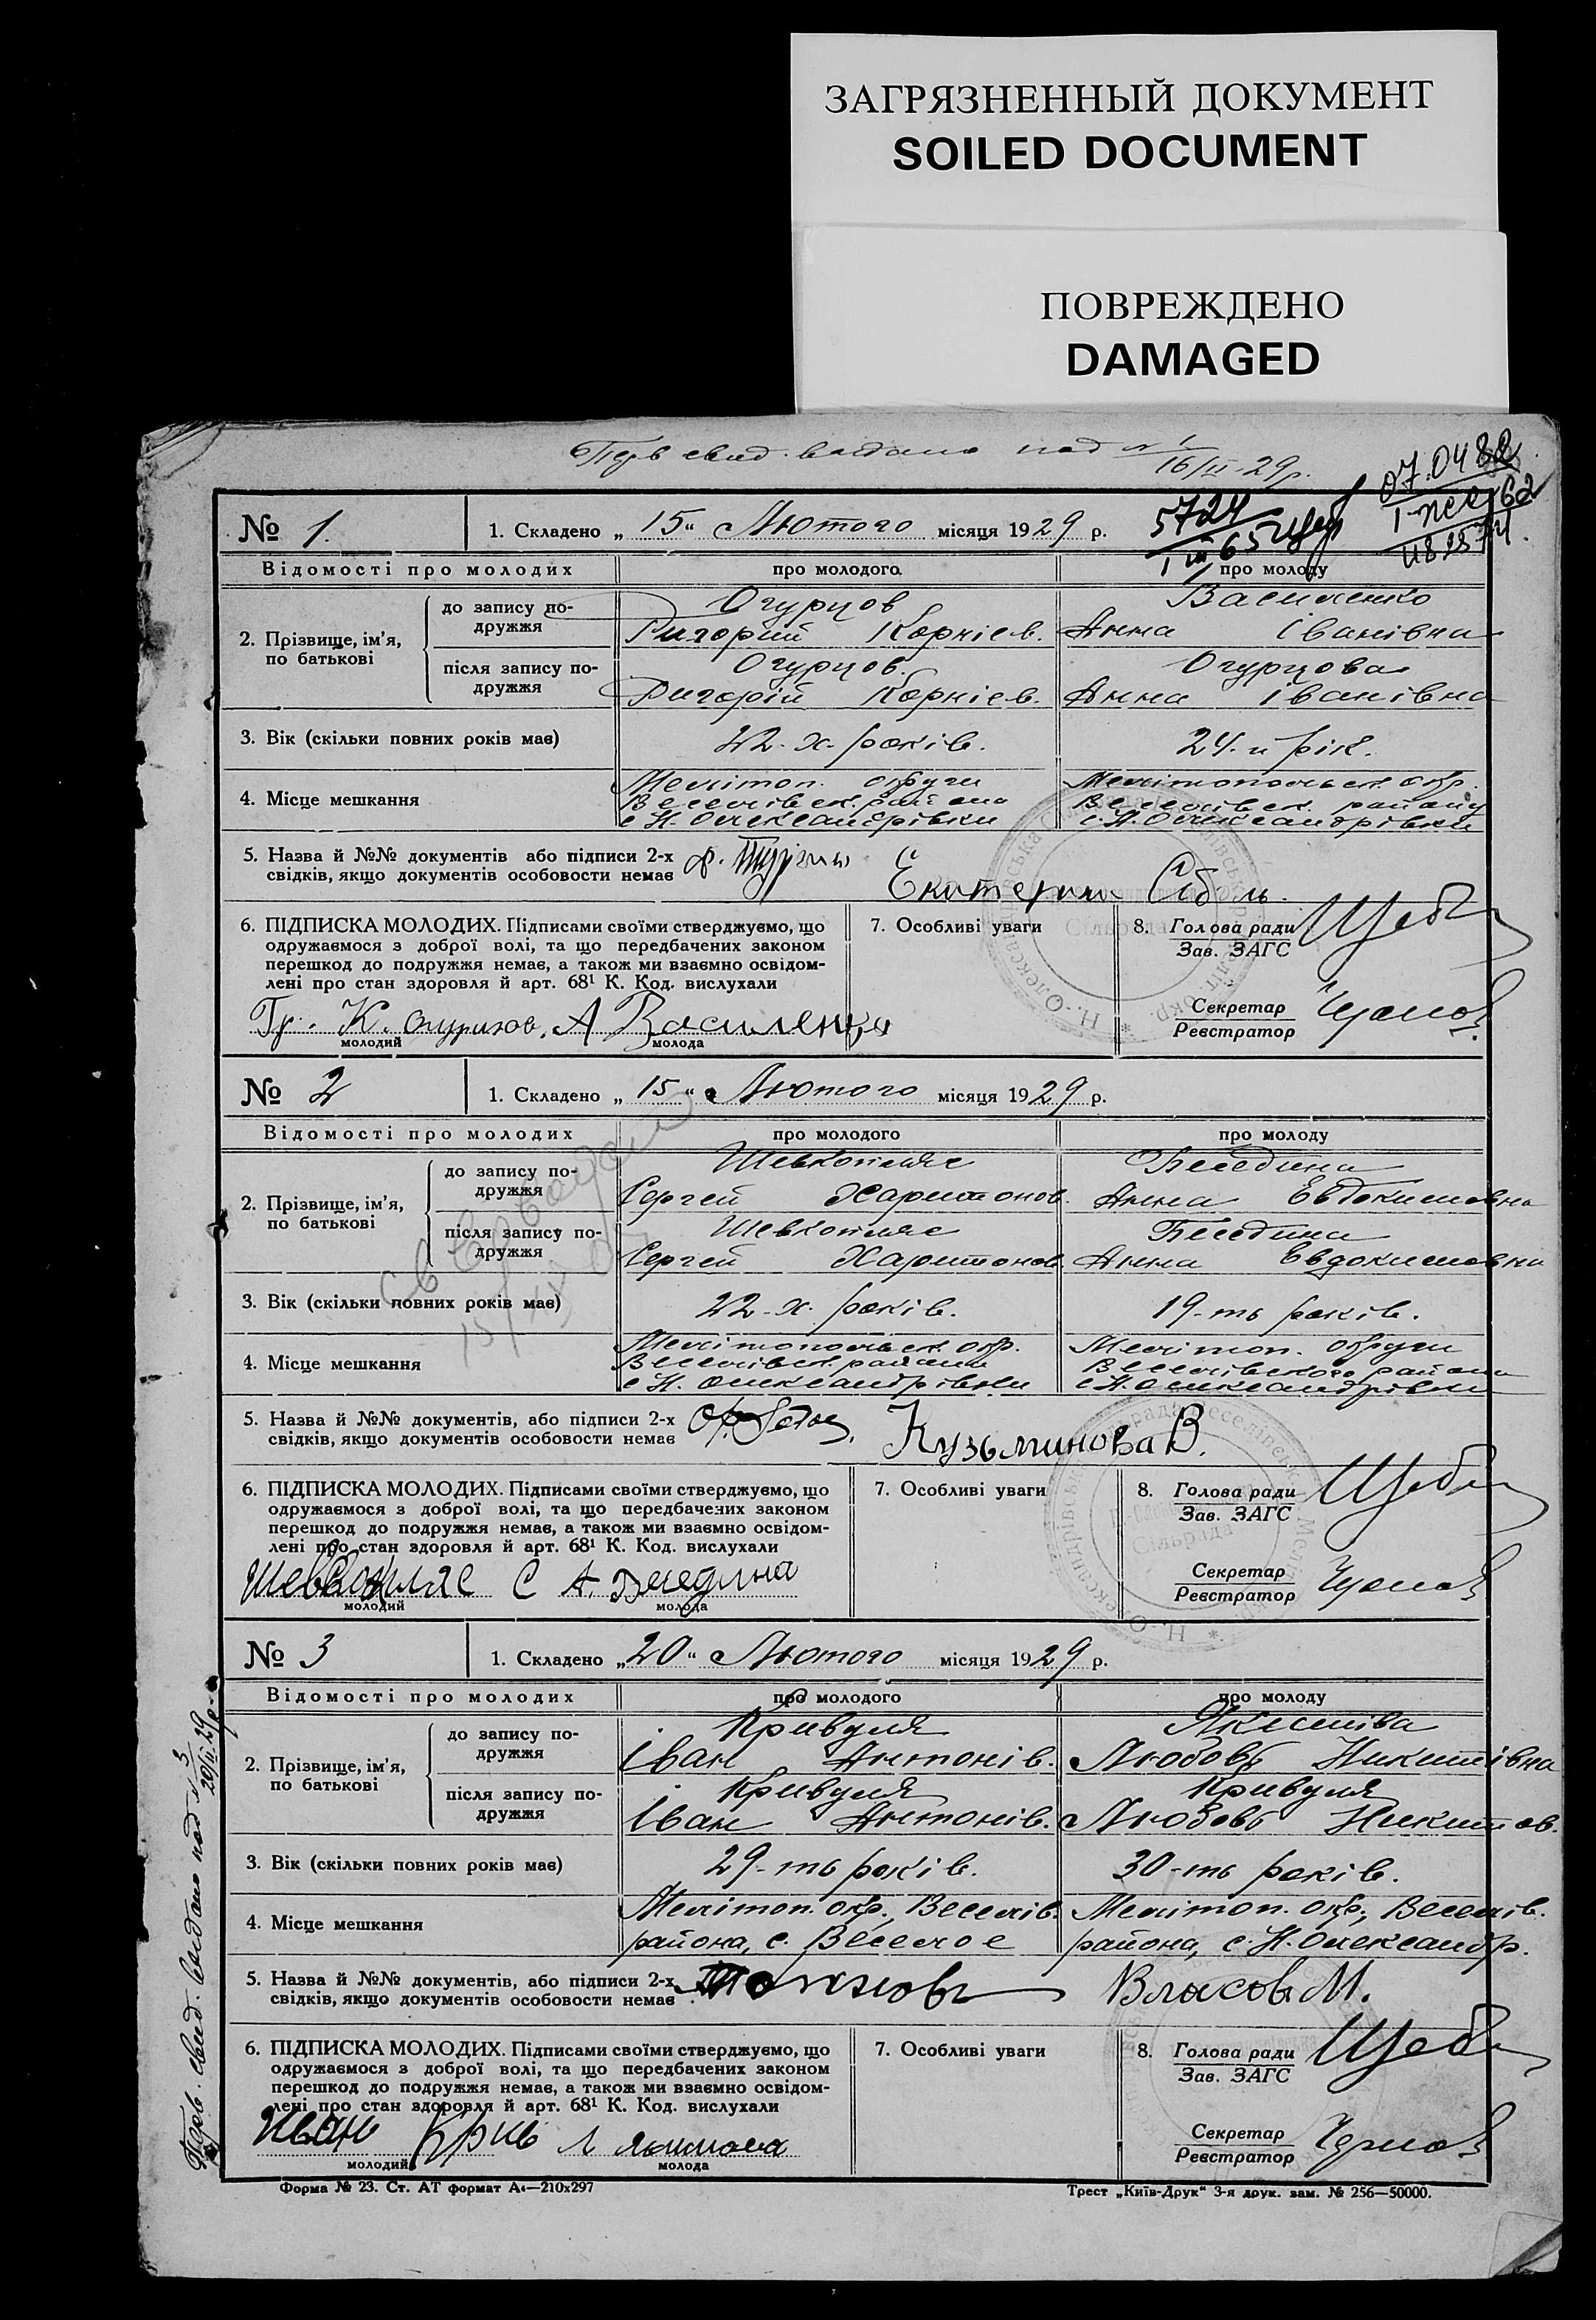 ЗАГРЯЗНЕННЫЙ ДОКУМЕНТ
SOILED DOCUMENT
ПОВРЕЖДЕНО
DAMAGED
16/II-29р.
07.0482
5724
№ 1. 1. Складено „15" Лютого місяця 1929 р.
Відомості про молодих про молодого. про молоду
2. Прізвище, ім'я, по батькові
до запису подружжя Огурцов Василенко
Григорий Корніев. Анна Іванівна
після запису подружжя Огурцов. Огурцова
Григорій Корніев. Анна Іванівна
3. Вік (скільки повних років має) 22-х років. 24-и рік.
4. Місце мешкання Мелітоп. округи Мелітопольск. окр.
Веселівск. района Веселівск. району
с Н. Олександрівки с. Н. Олександрівки
5. Назва й №№ документів або підписи 2-х
свідків, якщо документів особовости немає
Екатерина
6. ПІДПИСКА МОЛОДИХ. Підписами своїми стверджуємо, що 7. Особливі уваги 8. Голова ради
одружаємося з доброї волі, та що передбачених законом Зав. ЗАГС
перешкод до подружжя немає, а також ми взаємно освідом-
лені про стан здоровля й арт. 68¹ К. Код. вислухали Секретар
Реєстратор
Гр. К. Огурцов. А Василенко
молодий молода
№ 2 1. Складено „15" Лютого місяця 1929 р.
Відомості про молодих про молодого про молоду
2. Прізвище, ім'я, по батькові
до запису подружжя Шевкопляс Беседина
Сергей Харитонов. Анна Евдокимовна
після запису подружжя Шевкопляс Беседина
Сергей Харитонов. Анна Евдокимовна
3. Вік (скільки повних років має) 22-х років. 19-ть років.
4. Місце мешкання Мелітопольск. окр. Мелітоп. округи
Веселівск. района Веселівского района
с Н. Олександрівки с Н. Олександрівки
5. Назва й №№ документів, або підписи 2-х
свідків, якщо документів особовости немає
Кузьминова В.
6. ПІДПИСКА МОЛОДИХ. Підписами своїми стверджуємо, що 7. Особливі уваги 8. Голова ради
одружаємося з доброї волі, та що передбачених законом Зав. ЗАГС
перешкод до подружжя немає, а також ми взаємно освідом-
лені про стан здоровля й арт. 68¹ К. Код. вислухали Секретар
Реєстратор
Шевкопляс С А. Беседина
молодий молода
№ 3 1. Складено „20" Лютого місяця 1929 р.
Відомості про молодих про молодого про молоду
2. Прізвище, ім'я, по батькові
до запису подружжя Кривуля Якимів​а
Іван Антонів. Любовь Никитівна
після запису подружжя Кривуля Кривуля
Іван Антонів. Любовь Никитов.
3. Вік (скільки повних років має) 29-ть років. 30-ть років.
4. Місце мешкання Мелітоп. окр., Веселів. Мелітоп. окр., Веселів.
района, с. Веселое района, с. Н. Олександр.
5. Назва й №№ документів, або підписи 2-х
свідків, якщо документів особовости немає
Власов М.
6. ПІДПИСКА МОЛОДИХ. Підписами своїми стверджуємо, що 7. Особливі уваги 8. Голова ради
одружаємося з доброї волі, та що передбачених законом Зав. ЗАГС
перешкод до подружжя немає, а також ми взаємно освідом-
лені про стан здоровля й арт. 68¹ К. Код. вислухали Секретар
Реєстратор
Иван Крив Л Якимова
молодий молода
Форма № 23. Ст. АТ формат А4—210x297 Трест „Київ-Друк" 3-я друк. зам. № 256—50000.